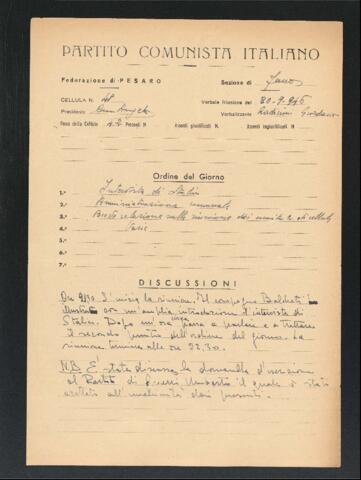 PARTITO COMUNISTA ITALIANO
Federazione di PESARO
Sezione di Fano
CELLULA N. 48
Verbale riunione del 30.9.946
Presidente
Verbalizzante Giordano
Forza della Cellula 42 Presenti N. Assenti giustificati N. Assenti ingiustificati N.
Ordine del Giorno
1.° Intervista di Stalin
2.° Amministrazione comunale
3.° Breve relazione sulla riunione dei comitati di cellula
4.° Varie
5.°
6.°
7.°
DISCUSSIONI
Ore 9,30 s'inizia la riunione. Il compagno
illustra con un'ampia introduzione l'intervista di
Stalin. Dopo un'ora circa passa a parlare e a trattare
il secondo punto dell'ordine del giorno. La
riunione termina alle ore 22.30.
N.B. E' stata discussa la domanda d'iscrizione
al Partito di Umberto il quale è stato
accettato all'unanimità dai presenti.